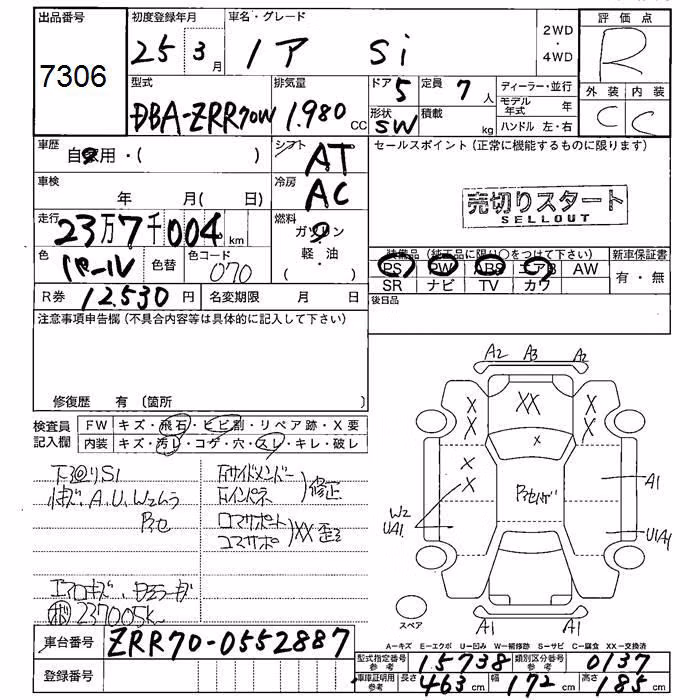 出品番号
7306
初度登録年月
25 3月
車名・グレード
ノア Si
2WD
・
4WD
評価点
R
型式
DBA-ZRR70W
排気量
1.980 CC
ドア 5
定員 7人
形状 SW
積載 kg
ディーラー・並行
モデル年式 年
ハンドル 左・右
外装 内装
C C
車歴
自家用・( )
シフト
AT
車検
年 月( 日)
冷房
AC
セールスポイント(正常に機能するものに限ります)
売切りスタート
SELLOUT
走行
23万7千004km
燃料
ガソリン
軽・油
( )
色
パール
色替
色コード
070
装備品(純正品に限り○をつけて下さい)
PS PW ABS エアB AW
SR ナビ TV カワ
新車保証書
有・無
R券 12,530円
名変期限 月 日
後日品
注意事項申告欄(不具合内容等は具体的に記入して下さい)
修復歴 有〔箇所 〕
検査員
記入欄
FW キズ・飛石・ヒビ割・リペア跡・X要
内装 キズ・汚レ・コゲ・穴・スレ・キレ・破レ
下廻りS1
A.U.W2
修正
コアサポート
XX 歪
エアロキズ
237005K
A2 A3 A2
XX
X
X
X
X
X
X
X
W2
UA1
A1
U1A1
A1 A1
スペア
A-キズ E-エクボ U-凹み W-補修跡 S-サビ C-腐食 XX-交換済
車台番号
ZRR70-0552887
登録番号
型式指定番号 参考 15738
類別区分番号 参考 0137
車庫証明用 参考 長さ 463cm 幅 172cm 高さ 185cm